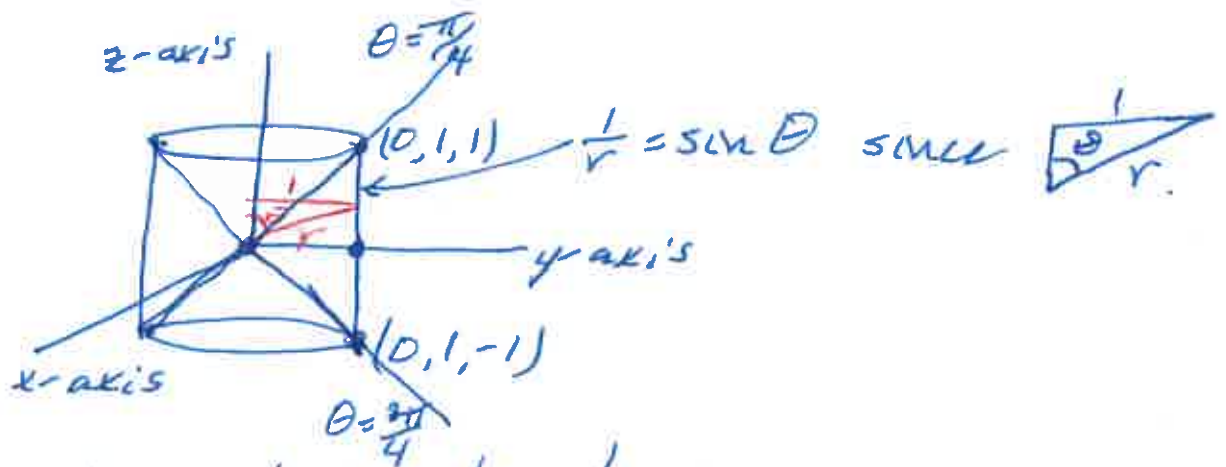 z-axis
θ=π/4
(0,1,1)
1/r = sin θ since
1
θ
r.
1
r
y-axis
(0,1,-1)
x-axis
θ=3π/4